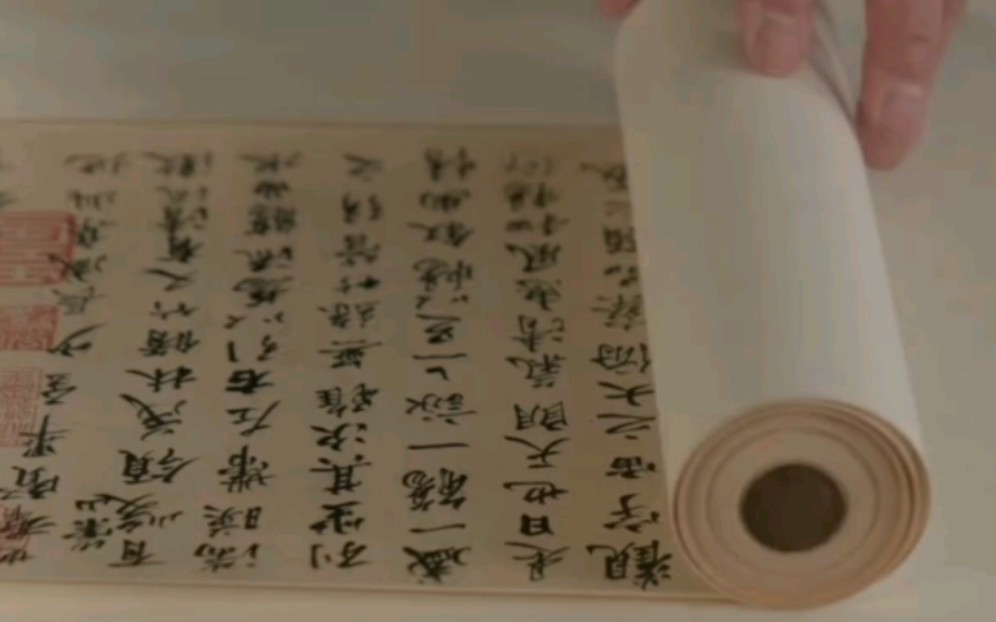 羣賢畢至少長咸集此地
有崇山峻領茂林脩竹又有清流激
湍暎帶左右引以為流觴曲水
列坐其次雖無絲竹管弦之
盛一觴一詠亦足以暢敘幽情
是日也天朗氣清惠風和暢仰
觀宇宙之大俯察品類之